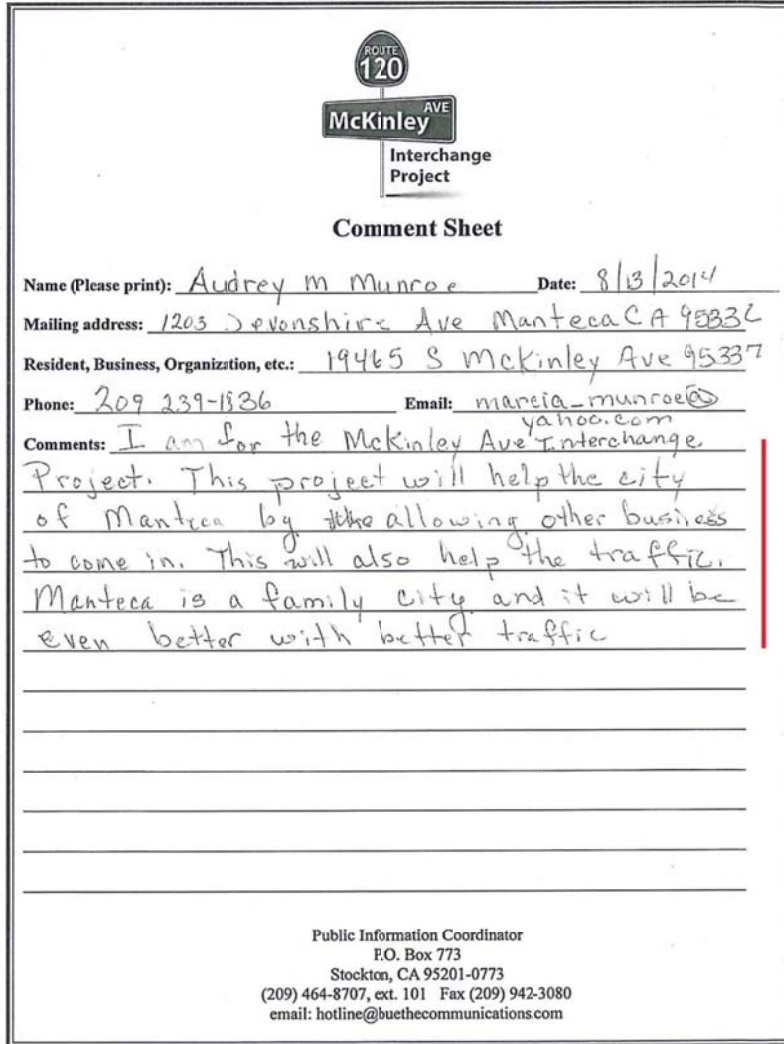 ROUTE
120
McKinley AVE
Interchange
Project
Comment Sheet
Name (Please print): Audrey M Munroe Date: 8/13/2014
Mailing address: 1203 Devonshire Ave Manteca CA 95336
Resident, Business, Organization, etc.: 19465 S McKinley Ave 95337
Phone: 209 239-1836 Email: marcia_munroe@
yahoo.com
Comments: I am for the McKinley Ave Interchange
Project. This project will help the city
of Manteca by allowing other business
to come in. This will also help the traffic.
Manteca is a family city and it will be
even better with better traffic
Public Information Coordinator
P.O. Box 773
Stockton, CA 95201-0773
(209) 464-8707, ext. 101 Fax (209) 942-3080
email: hotline@buethecommunications.com